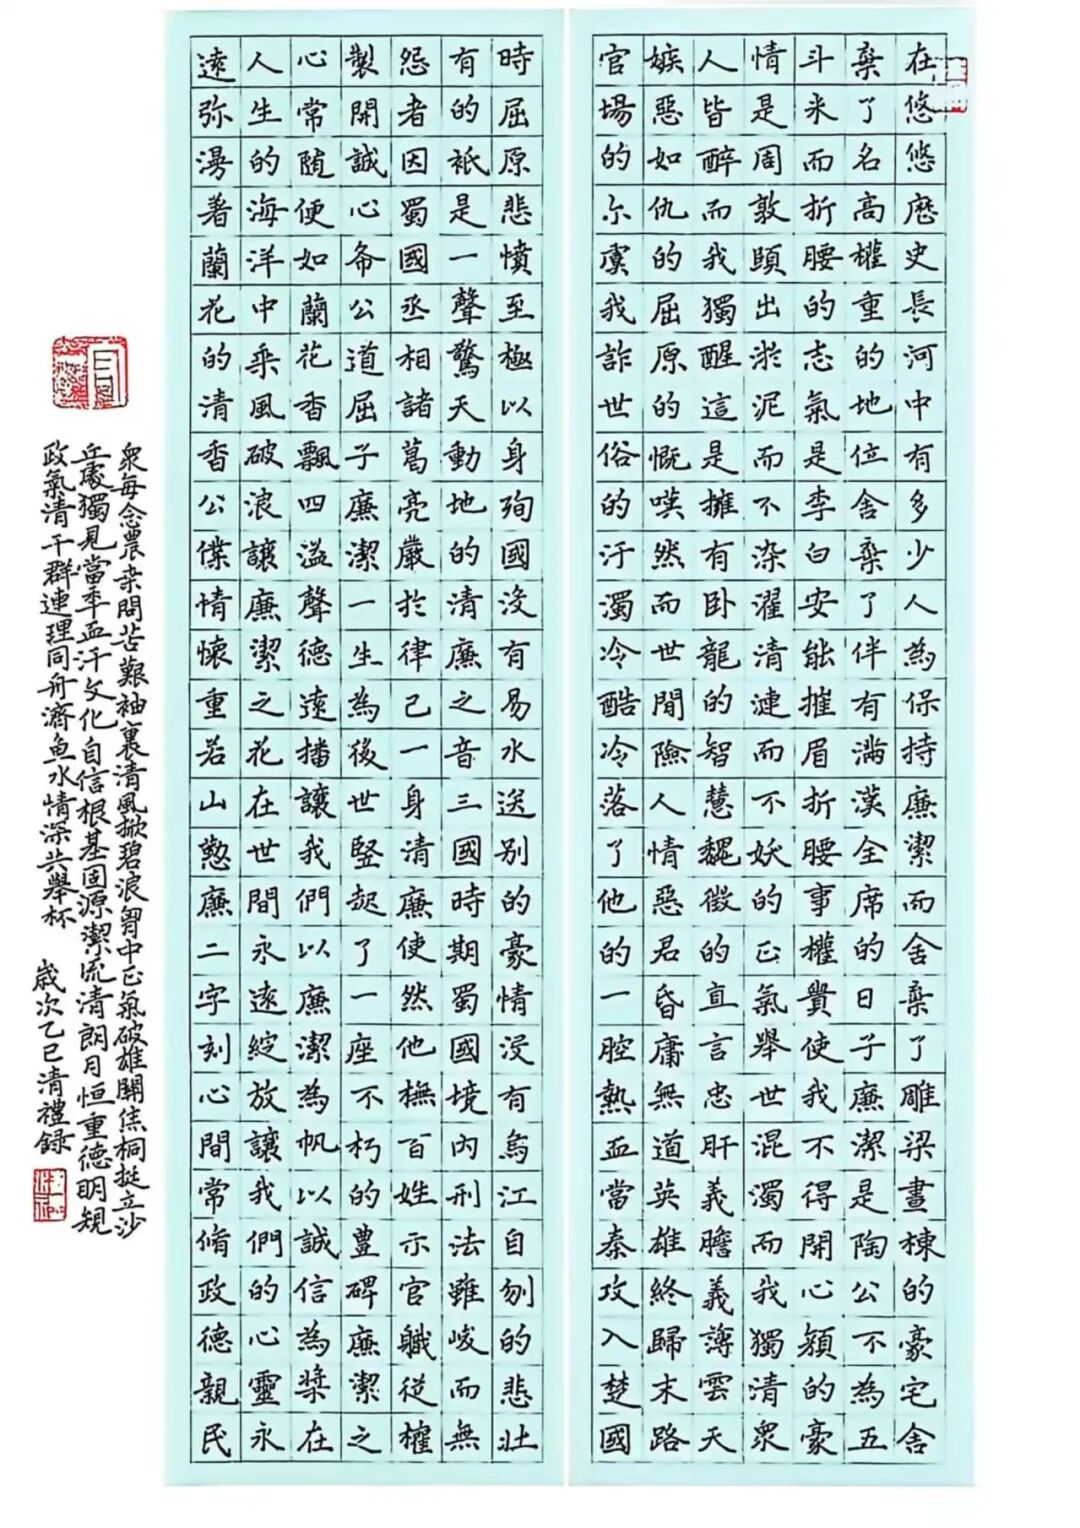 在悠悠歷史長河中有多少人為保持廉潔而舍棄了雕梁畫棟的豪宅舍
棄了名高權重的地位舍棄了伴有滿漢全席的日子廉潔是陶公不為五
斗米而折腰的志氣是李白安能摧眉折腰事權貴使我不得開心顏的豪
情是周敦頤出淤泥而不染濯清漣而不妖的正氣舉世混濁而我獨清眾
人皆醉而我獨醒這是擁有卧龍的智慧魏徵的直言忠肝義膽義薄雲天
嫉惡如仇的屈原的慨嘆然而世間險人情惡君昏庸無道英雄終歸末路
官場的尔虞我詐世俗的汙濁冷酷冷落了他的一腔熱血當秦攻入楚國
時屈原悲憤至極以身殉國没有易水送别的豪情没有烏江自刎的悲壯
有的衹是一聲驚天動地的清廉之音三國時期蜀國境内刑法雖峻而無
怨者因蜀國丞相諸葛亮嚴於律己一身清廉使然他撫百姓示官職從權
製開誠心布公道屈子廉潔一生為後世竪起了一座不朽的豊碑廉潔之
心常随便如蘭花香飄四溢聲德遠播讓我們以廉潔為帆以誠信為槳在
人生的海洋中乘風破浪讓廉潔之花在世間永遠綻放讓我們的心靈永
遠弥漫着蘭花的清香公僕情懷重若山勤廉二字刻心間常脩政德親民
衆每念農桑問苦艱袖裏清風掀碧浪胷中正氣破雄關焦桐挺立沙
丘處獨見當年血汗文化自信根基固源潔流清朗月恒重德明規
政氣清干群連理同舟濟魚水情深共舉杯 歲次乙巳清禮録